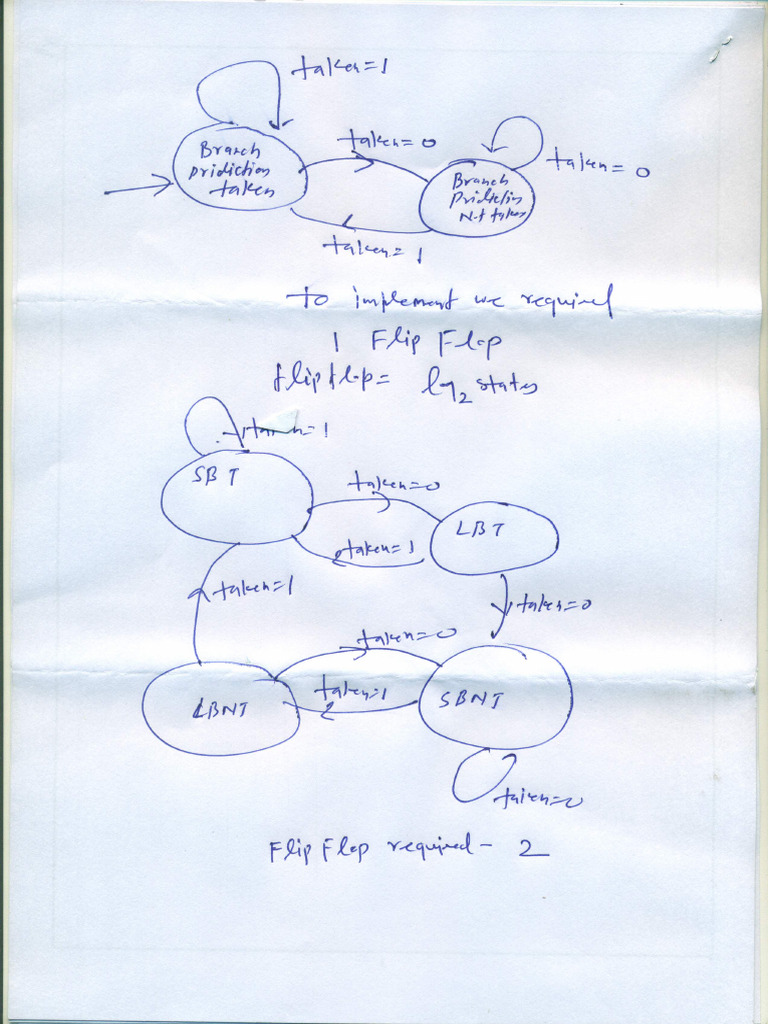 taken=1
taken=0
Branch
pridiction
taken
taken=0
Branch
Pridiction
Not taken
taken=1
to implement we required
1 Flip Flop
flip flop= log2 states
taken=1
SBT
taken=0
LBT
taken=1
taken=1
taken=0
taken=0
taken=1
LBNT
SBNT
taken=0
Flip Flop required- 2